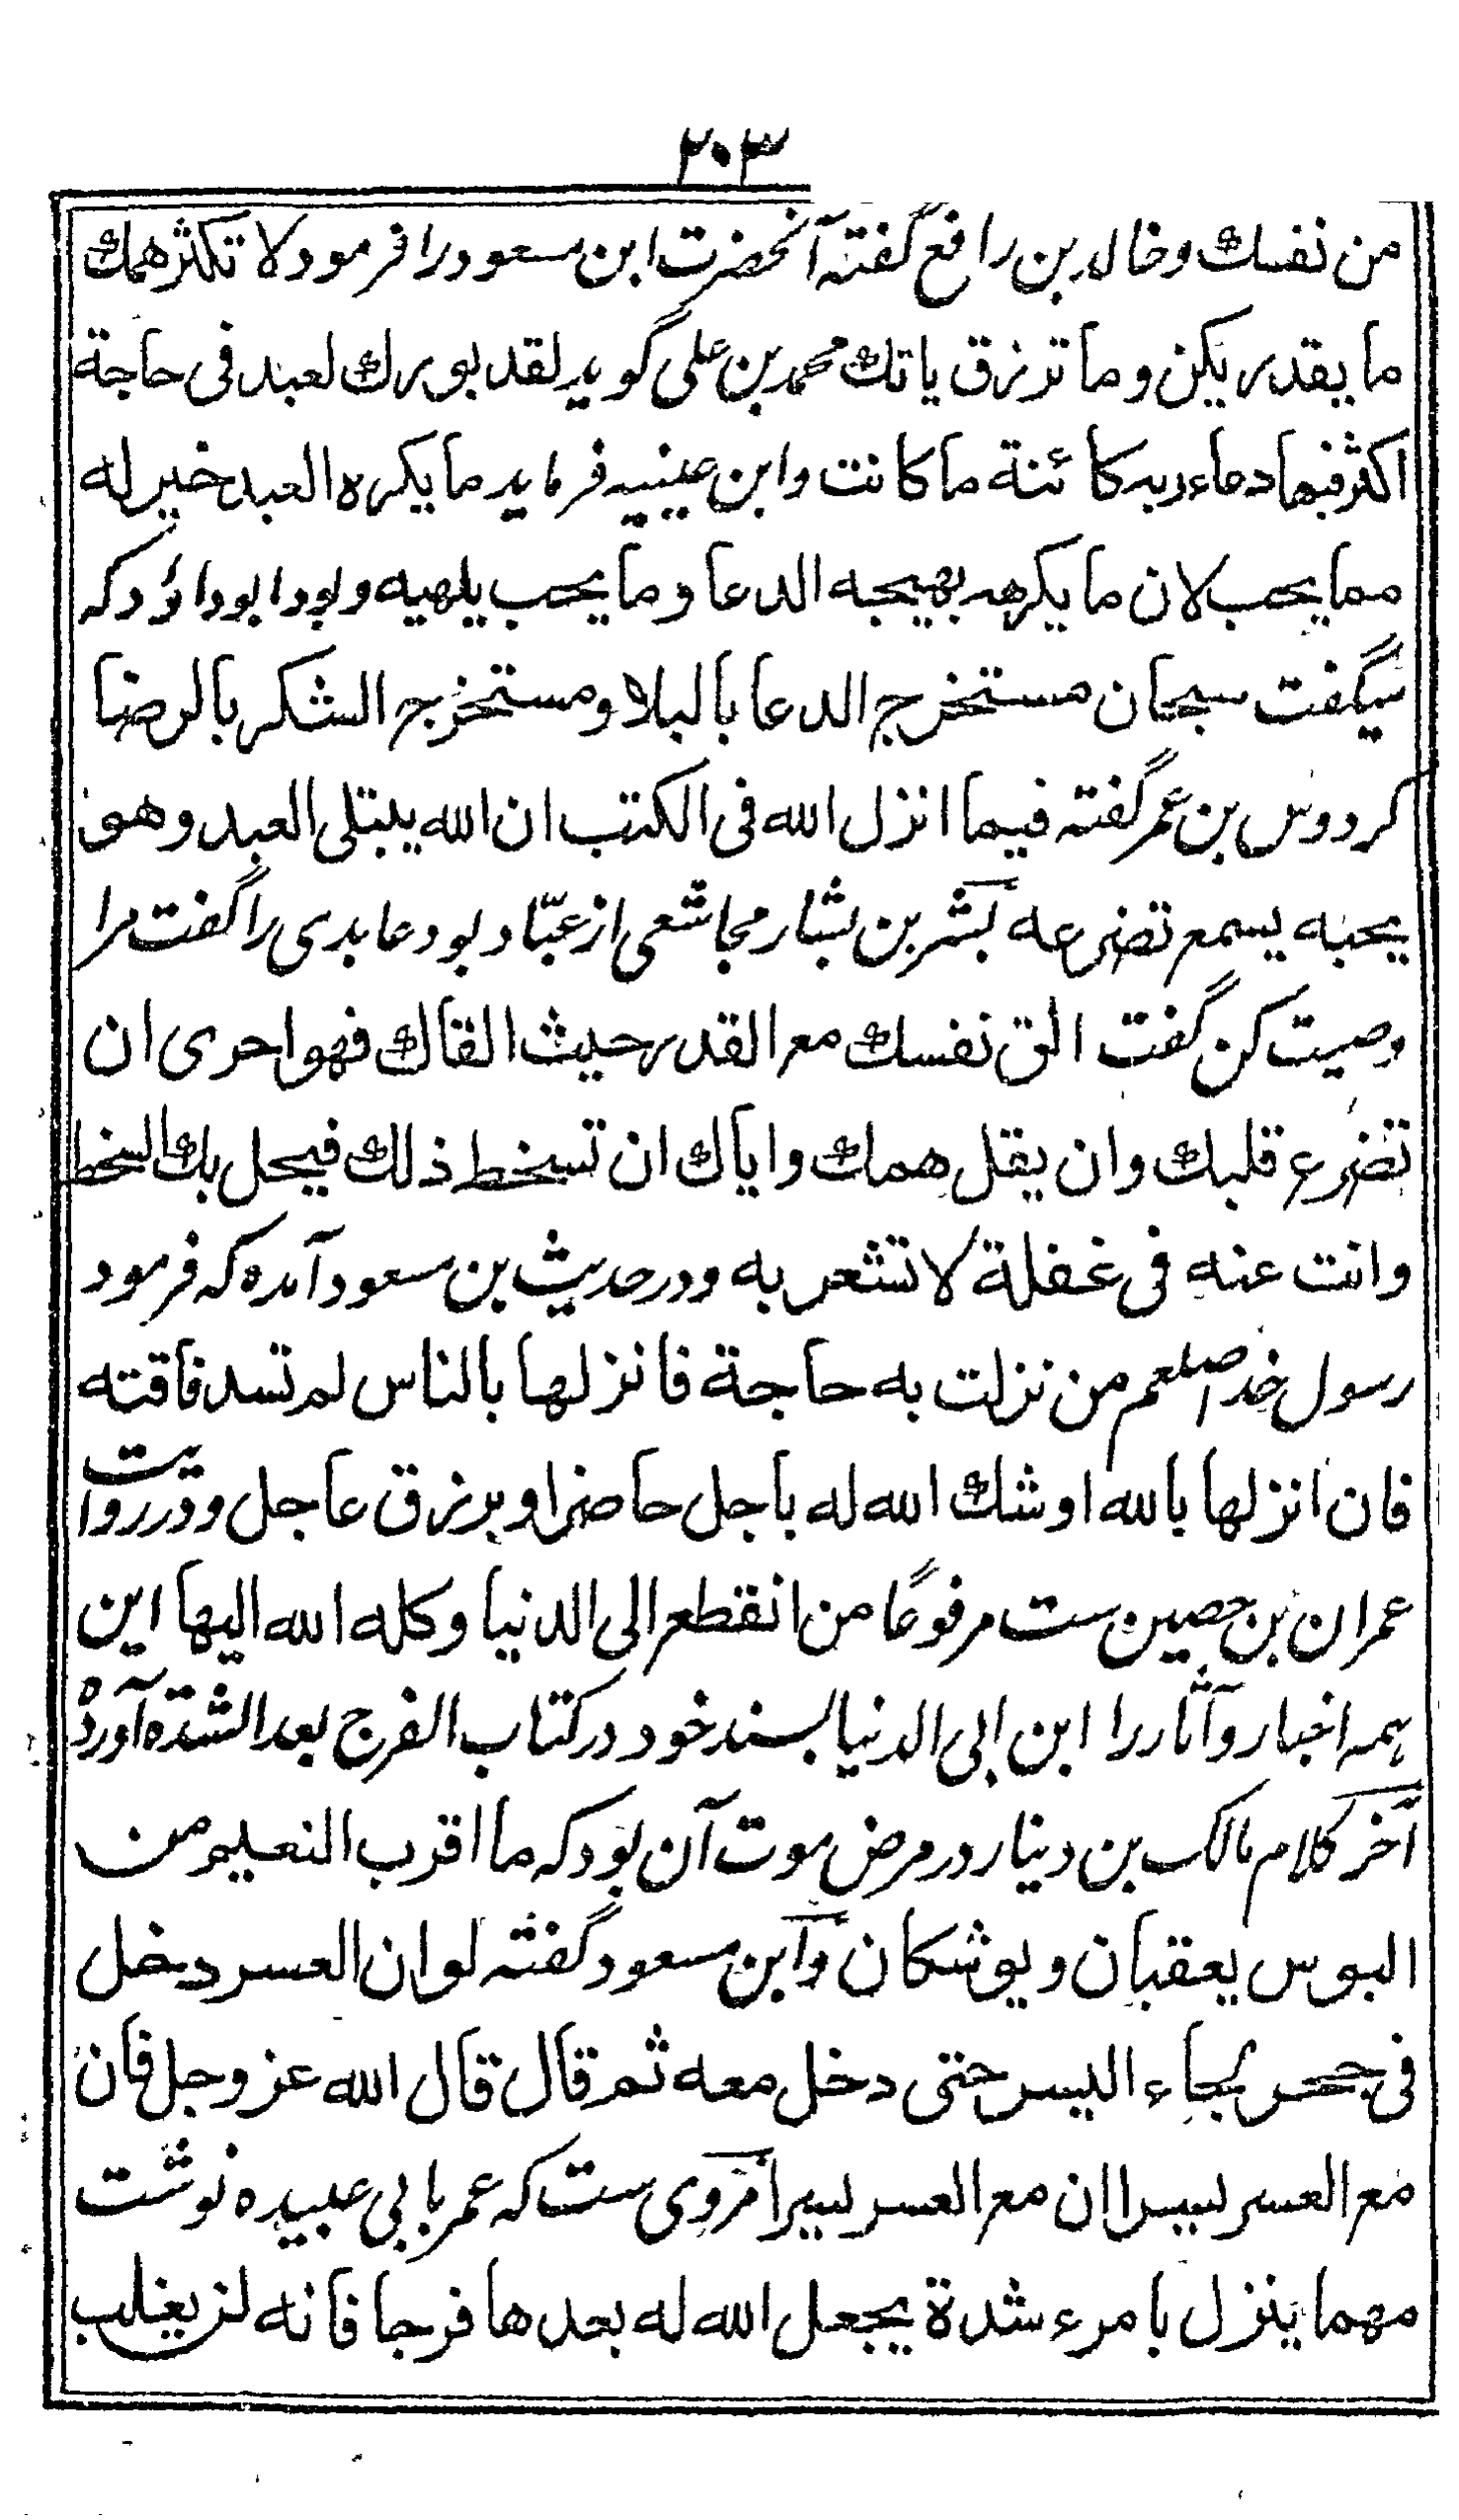 ۲۰۳
من نفسك وخالد بن رافع گفته آنحضرت ابن مسعود را فرمود لا تكثر همك
ما يقدر يكن وما ترزق ياتك محمد بن علی گوید لقد بورك لعبد فی حاجة
اكثر فيها دعاء ربه كائنة ما كانت وابن عیینیه فرماید ما يكره العبد خير له
مما يحب لان ما يكرهه يهيجه الدعا وما يحب يلهيه وبود ابو داؤد که
میگفت سبحان مستخرج الدعا بالبلا ومستخرج الشكر بالرضا
كردوس بن عمر گفته فيما انزل الله فی الكتب ان الله يبتلی العبد وهو
يحبه يسمع تضرعه بشر بن بشار مجاشعی از عبّاد بود عابدی را گفت مرا
وصیت کن گفت الق نفسك مع القدر حيث القاك فهو احری ان
تضرع قلبك وان يقل همك واياك ان تسخط ذلك فيحل بك السخط
وانت عنه فی غفلة لا تشعر به ودر حدیث بن مسعود آمده که فرمود
رسول خدا صلعم من نزلت به حاجة فانزلها بالناس لم تسد فاقته
فان انزلها بالله اوشك الله له باجل حاضر او برزق عاجل ودر روایت
عمران بن حصین ست مرفوعًا من انقطع الی الدنيا وكله الله اليها این
همه اخبار وآثار را ابن ابی الدنیا بسند خود در کتاب الفرج بعد الشدة آورده
آخر کلام مالک بن دینار در مرض موت آن بود که ما اقرب النعيم من
البوس يعقبان ويوشكان وابن مسعود گفته لو ان العسر دخل
فی جحر لجاء اليسر حتی دخل معه ثم قال قال الله عز وجل فان
مع العسر يسرا ان مع العسر يسرا مروی ست که عمر بابی عبیده نوشت
مهما ينزل بامرء شدة يجعل الله له بعدها فرجا فانه لن يغلب